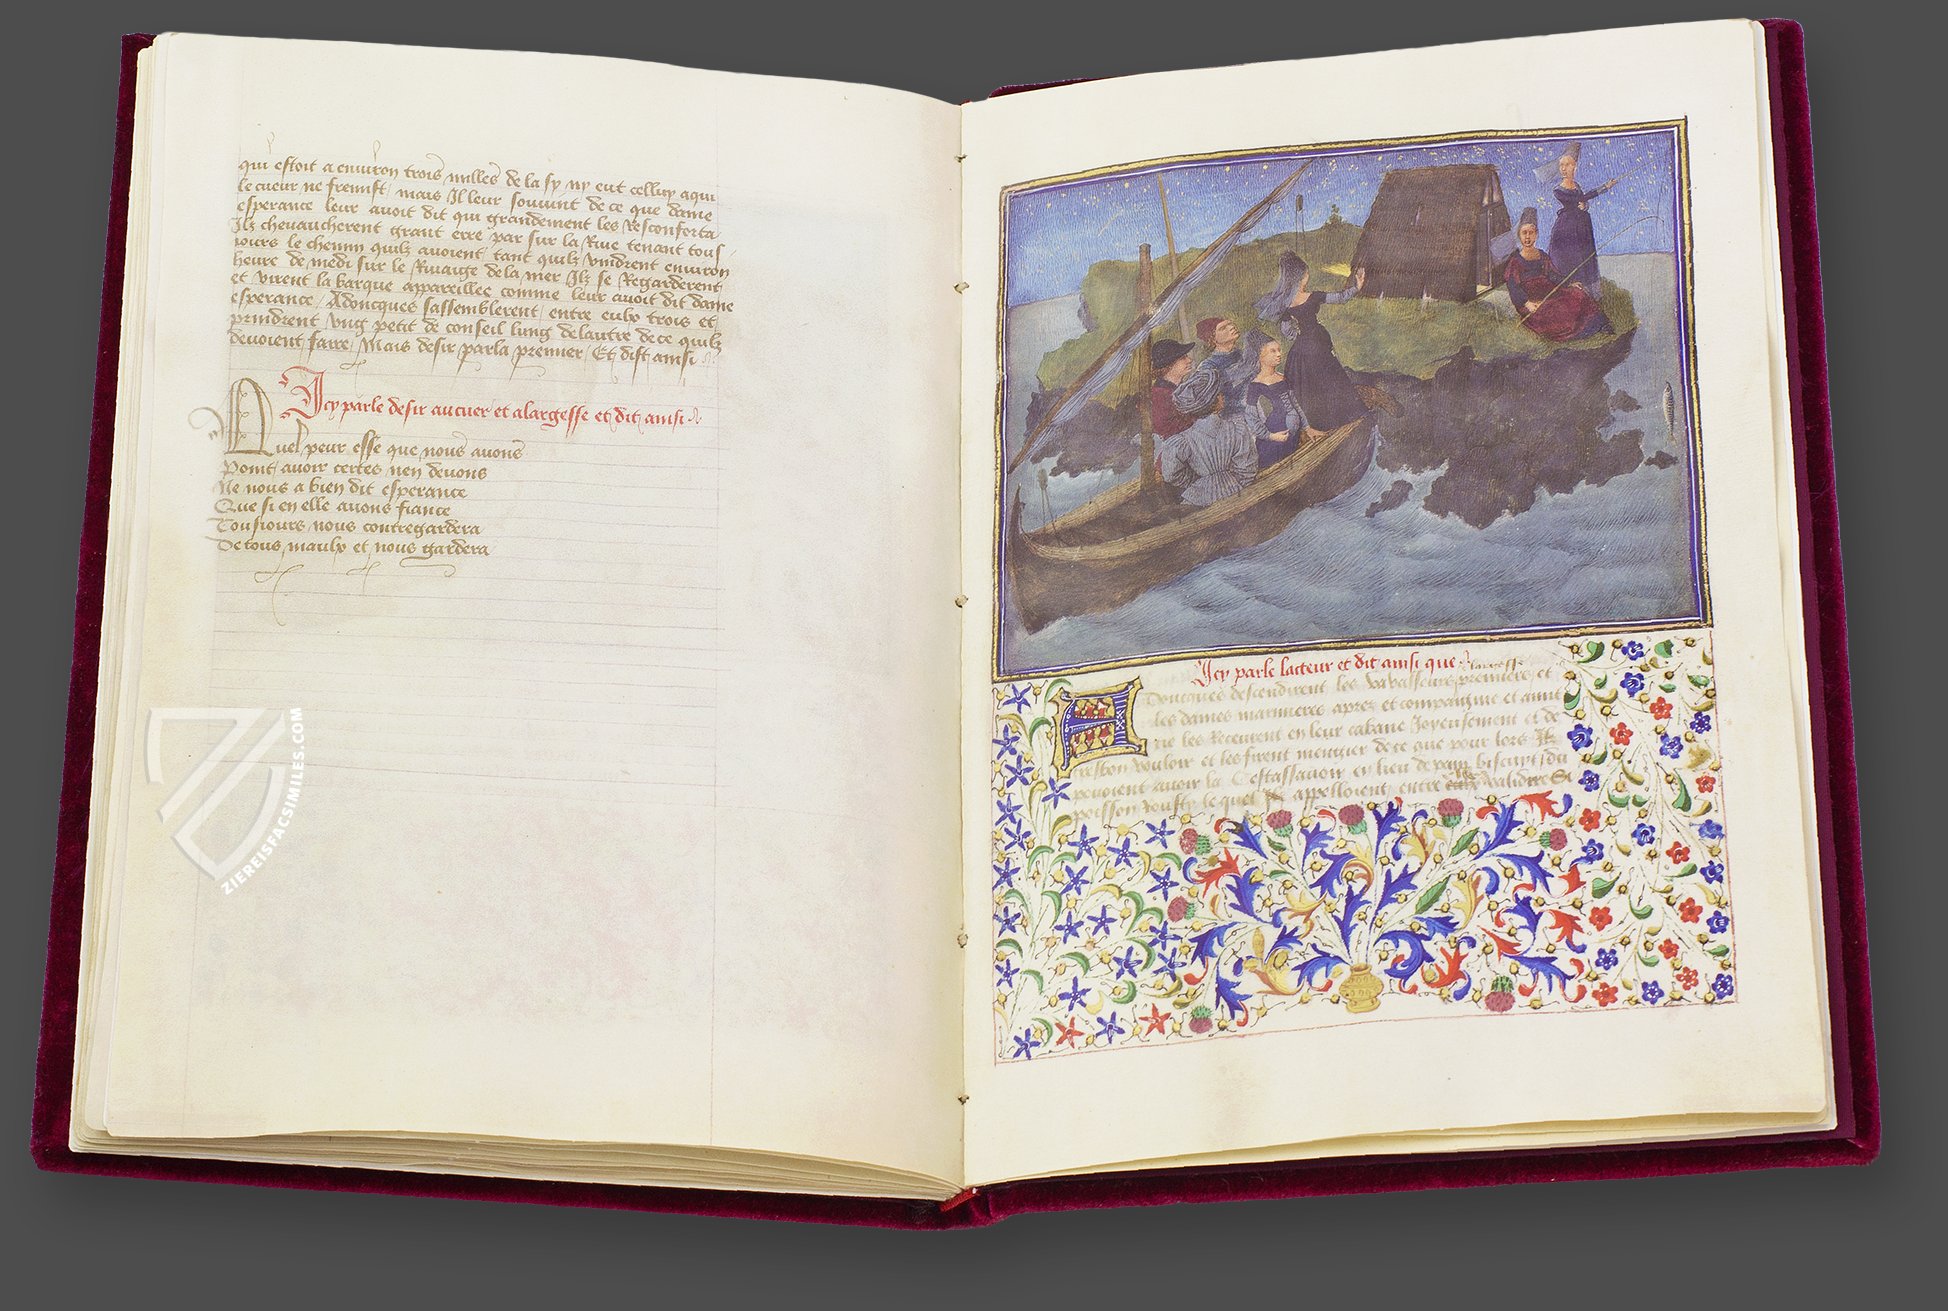 qui estoit a environ trois milles de la sy ny eut celluy a qui
le cueur ne fremist / mais Il leur souvint de ce que dame
esperance leur avoit dit qui grandement les Resconforta
Ilz chevaucherent grant erre par sur la Rive tenant tous
jours le chemin quilz avoient tant quilz vindrent environ
heure de medi sur le Rivaige de la mer Ilz se Regarderent
et virent la barque appareillee comme leur avoit dit dame
esperance / Adoncques sassemblerent entre eulx trois et
prindrent ung petit de conseil lung de lautre de ce quilz
devoient faire / Mais desir parla premier / Et dist ainsi
Icy parle desir au cuer et a largesse et dit ainsi
Quel peur esse que nous avons
Point avoir certes nen devons
Ne nous a bien dit esperance
Que si en elle avons fiance
Tousjours nous contregardera
De tous maulx et nous gardera
ZIEREISFACSIMILES.COM
Icy parle lacteur et dit ainsi que
Doncques descendirent les premiers et
les dames marinieres apres et compaignie et amit
les Receurent en leur cabane Joyeusement et de
tresbon vouloir et les firent mengier de ce que pour lors
povoient avoir la Cestassavoir en lieu de pain biscuyt / du
poisson Rousty le quel appelloient entre